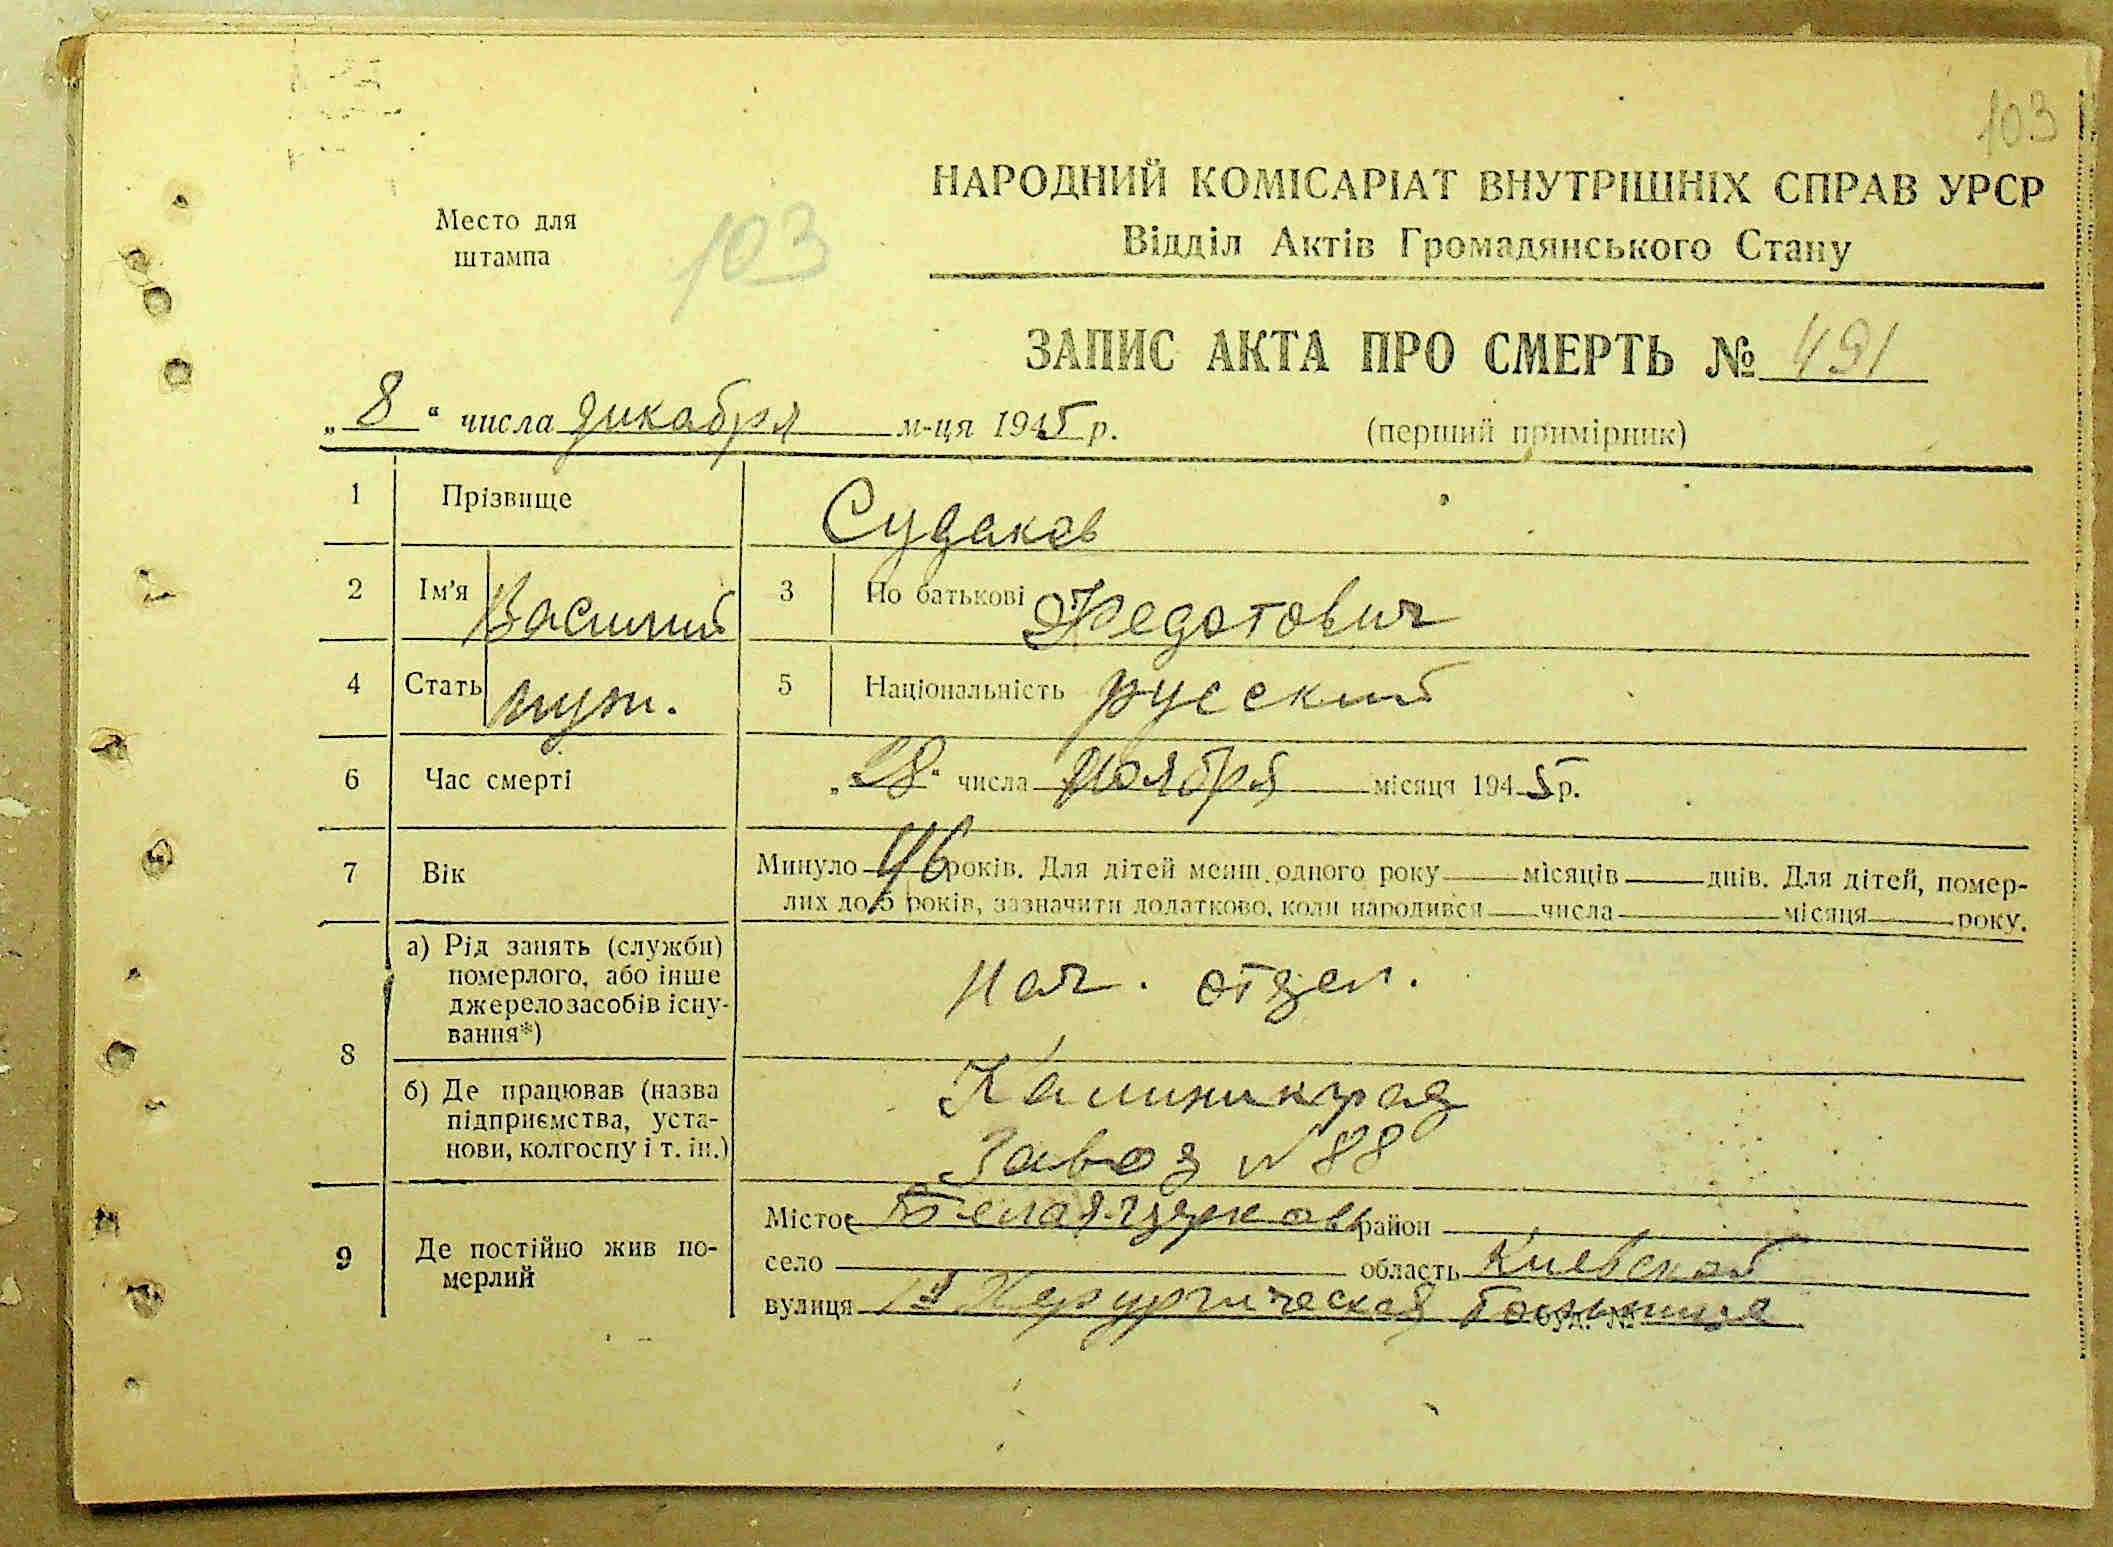 103
НАРОДНИЙ КОМІСАРІАТ ВНУТРІШНІХ СПРАВ УРСР
Відділ Актів Громадянського Стану
Место для
штампа
103
ЗАПИС АКТА ПРО СМЕРТЬ № 491
„8“ числа декабря м-ця 1945 р.
(перший примірник)
1 Прізвище Судаков
2 Ім'я Василий 3 По батькові Федотович
4 Стать муж. 5 Національність русский
6 Час смерті „28“ числа ноября місяця 1945 р.
7 Вік Минуло 46 років. Для дітей менш одного року місяців днів. Для дітей, помер-
лих до 5 років, зазначити додатково, коли народився числа місяця року.
8 а) Рід занять (служби)
померлого, або інше
джерело засобів існу-
вання*)
Нач. отдел.
б) Де працював (назва
підприємства, уста-
нови, колгоспу і т. ін.)
Калининград
Завод № 88
9 Де постійно жив по-
мерлий
Місто Белая-Церковь район
село область Киевской
вулиця 1я Херургическая больница буд. №